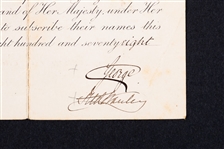 and of Her Majesty, under Her
to subscribe their names this
ght hundred and seventy eight
George